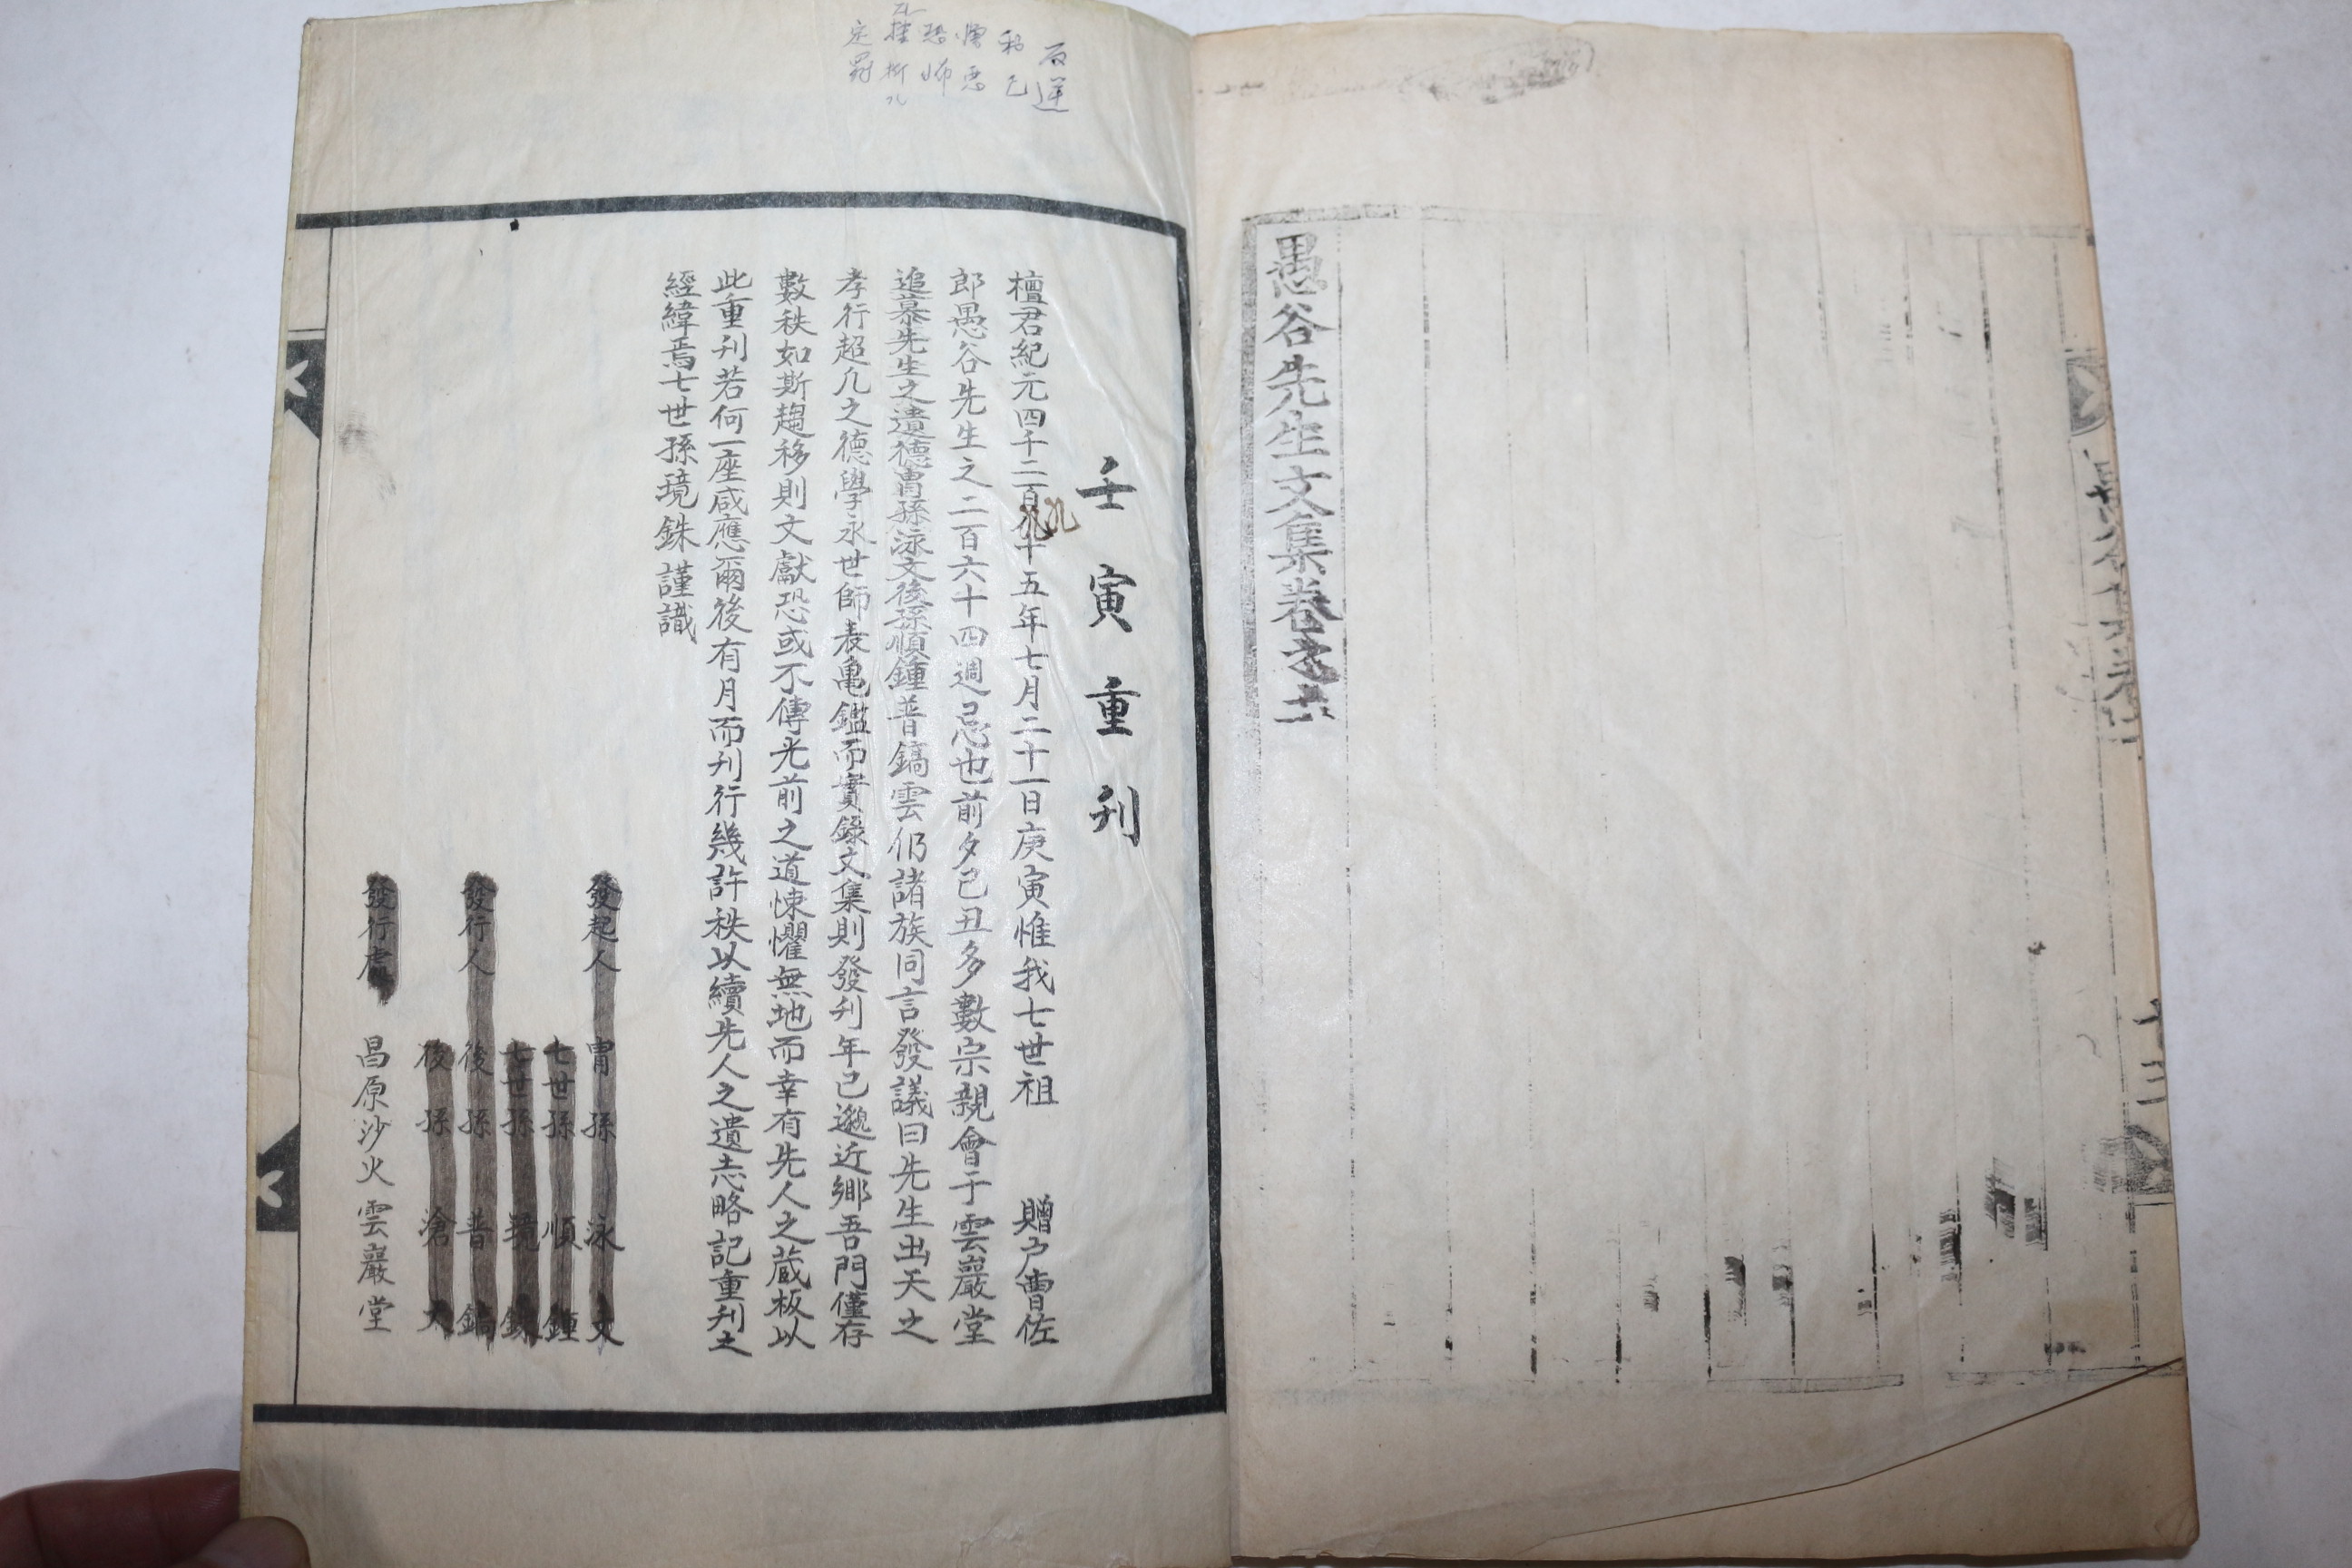 愚谷先生文集卷之六
壬寅重刊
檀君紀元四千二百九十五年七月二十一日庚寅惟我七世祖 贈户曹佐
郎愚谷先生之二百六十四週忌也前夕己丑多數宗親會于雲巖堂
追慕先生之遺德胄孫泳文後孫順鍾普鎬雲仍諸族同言發議曰先生出天之
孝行超凡之德學永世師表龜鑑而實錄文集則發刊年已邈近鄉吾門僅存
數秩如斯趨移則文獻恐或不傳光前之道悚懼無地而幸有先人之蔵板以
此重刊若何一座咸應爾後有月而刋行幾許秩以續先人之遺志略記重刋之
經緯焉七世孫璄銖謹識
發起人 胄孫 泳文
七世孫 順鍾
七世孫 璄銖
發行人 後孫 普鎬
後孫 滄
發行處 昌原沙火雲巖堂
反逆
定罪